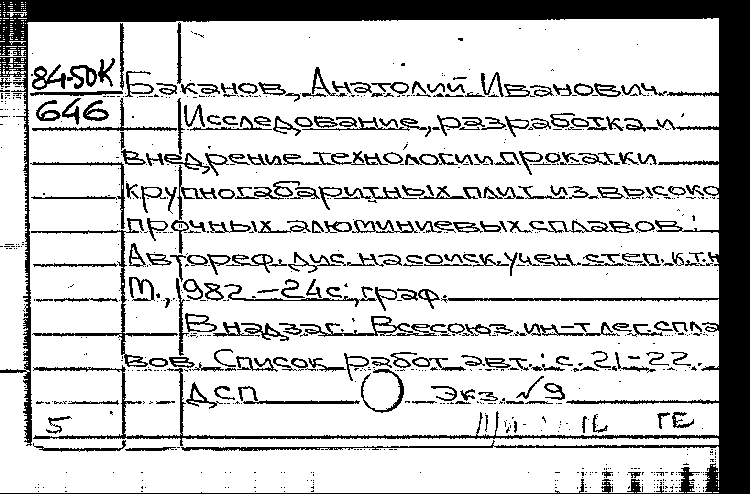 84-50К Баканов, Анатолий Иванович.
646 Исследование, разработка и
внедрение технологии прокатки
крупногабаритных плит из высоко
прочных алюминиевых сплавов :
Автореф. дис. на соиск. учен. степ. к.т.н
М., 1982. – 24с., граф.
В надзаг.: Всесоюз. ин-т лег. спла
вов. Список работ авт.: с. 21-22.
ДСП Экз. √9
5 ГЕ